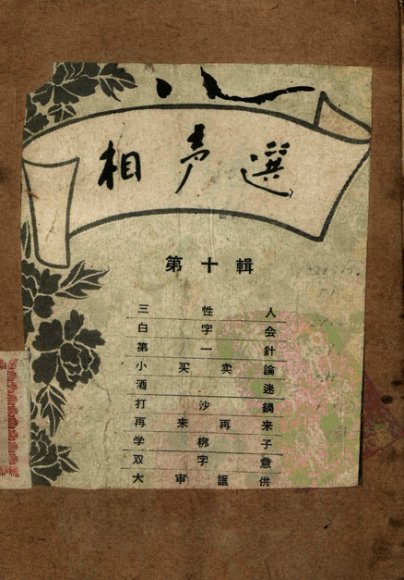 相声選
第十輯
三性人
白字会
第一針
小买卖論
酒迷
打沙鍋
再来再来
学梆子
双字意
大审誆供